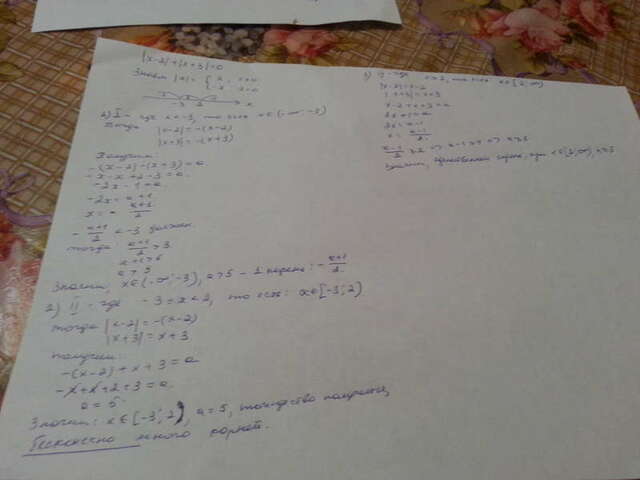 |x-2|+|x+3|=a
Знаем |x| = { x, x≥0
-x
-3 2 x
1) I - где x<-3, то есть x∈(-∞; -3)
тогда |x-2|=-(x-2)
|x+3|=-(x+3)
Получим:
-(x-2)-(x+3)=a
-x-x+2-3=a.
-2x-1=a.
-2x=a+1
x=-\frac{a+1}{2}
-\frac{a+1}{2}<-3 должен
тогда \frac{a+1}{2}>3
a+1>6
a>5
Значит, x∈(-∞; -3), a>5 - 1 корень: -\frac{a+1}{2}
2) II - где -3≤x<2, то есть: x∈[-3; 2)
тогда |x-2|=-(x-2)
|x+3|=x+3
получим:
-(x-2)+x+3=a
-x+x+2+3=a.
a=5.
Значит: x∈[-3; 2), a=5, тождество
бесконечно много корней.
- где x≥2, то есть x∈[2; ∞)
|x-2|=x-2
|x+3|=x+3
x-2+x+3=a
2x+1=a
2x=a-1
x=\frac{a-1}{2}
\frac{a-1}{2}≥2 => a-1≥4 => a≥5
Значит, корень, при x∈[2; ∞), a≥5